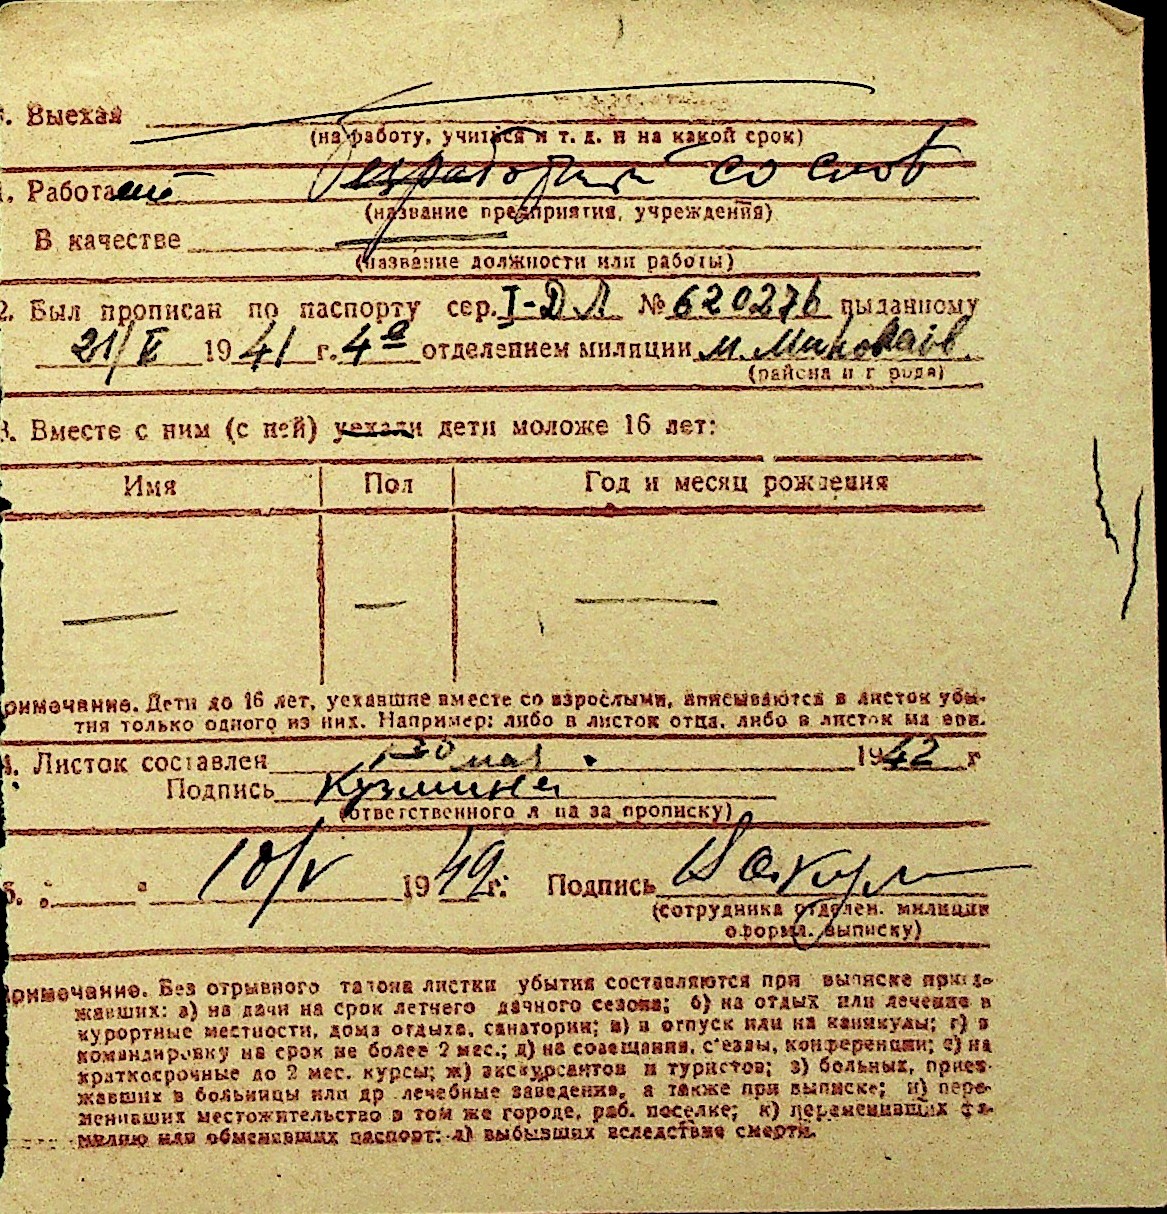 . Выехал
(на работу, учиться и т. д. и на какой срок)
. Работа безработный со слов
(название предприятия, учреждения)
В качестве
(название должности или работы)
2. Был прописан по паспорту сер. I-ДЛ № 620276 выданному
21/V 1941 г. 4е отделением милиции
(района и города)
3. Вместе с ним (с ней) уехали дети моложе 16 лет:
Имя Пол Год и месяц рождения
— — —
римечание. Дети до 16 лет, уехавшие вместе со взрослыми, вписываются в листок убы-
тия только одного из них. Например: либо в листок отца, либо в листок матери.
4. Листок составлен 30 мая 1942 г
Подпись Кузмина
(ответственного л ца за прописку)
5. 10/V 1942 г. Подпись
(сотрудника отделен. милиции
оформ. выписку)
римечание. Без отрывного талона листки убытия составляются при выписке приез-
жавших: а) на дачи на срок летнего дачного сезона; б) на отдых или лечение в
курортные местности, дома отдыха, санатории; в) в отпуск или на каникулы; г) в
командировку на срок не более 2 мес.; д) на совещания, съезды, конференции; е) на
краткосрочные до 2 мес. курсы; ж) экскурсантов и туристов; з) больных, приез-
жавших в больницы или др лечебные заведения, а также при выписке; и) пере-
менивших местожительство в том же городе, раб. поселке; к) переменивших фа-
милию или обменявших паспорт; л) выбывших вследствие смерти.